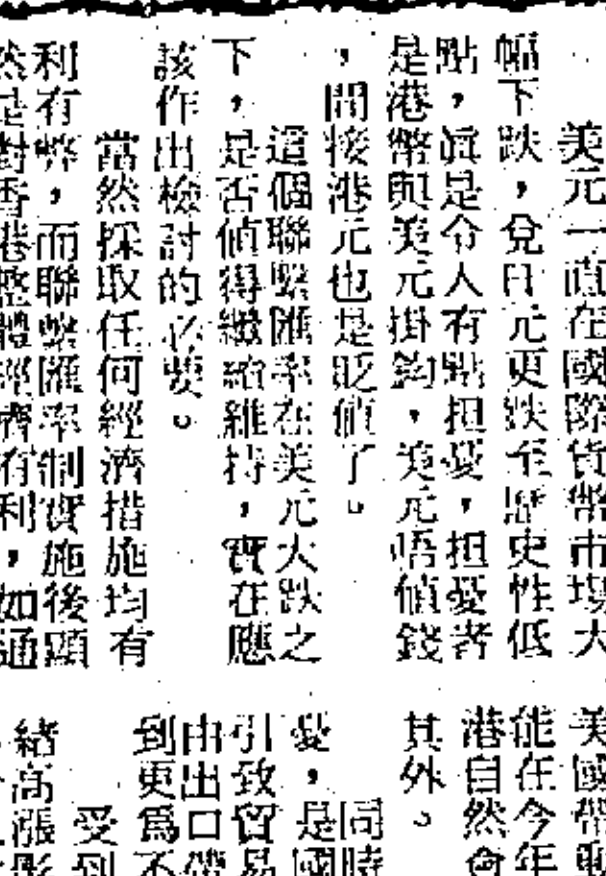 美元一直在國際貨幣市場大
幅下跌，兌日元更跌至歷史性低
點，眞是令人有點担憂，担憂者
是港幣與美元掛鈎，美元唔値錢
，間接港元也是貶値了。
這個聯繫匯率在美元大跌之
下，是否値得繼續維持，實在應
該作出檢討的必要。
當然採取任何經濟措施均有
利有弊，而聯繫匯率制實施後顯
然是對香港整體經濟有利，如通
美國帶動
能在今年
港自然會
其外。
同時
憂，是國
引致貿易
由出口帶
到更爲不
受到
緒高漲影